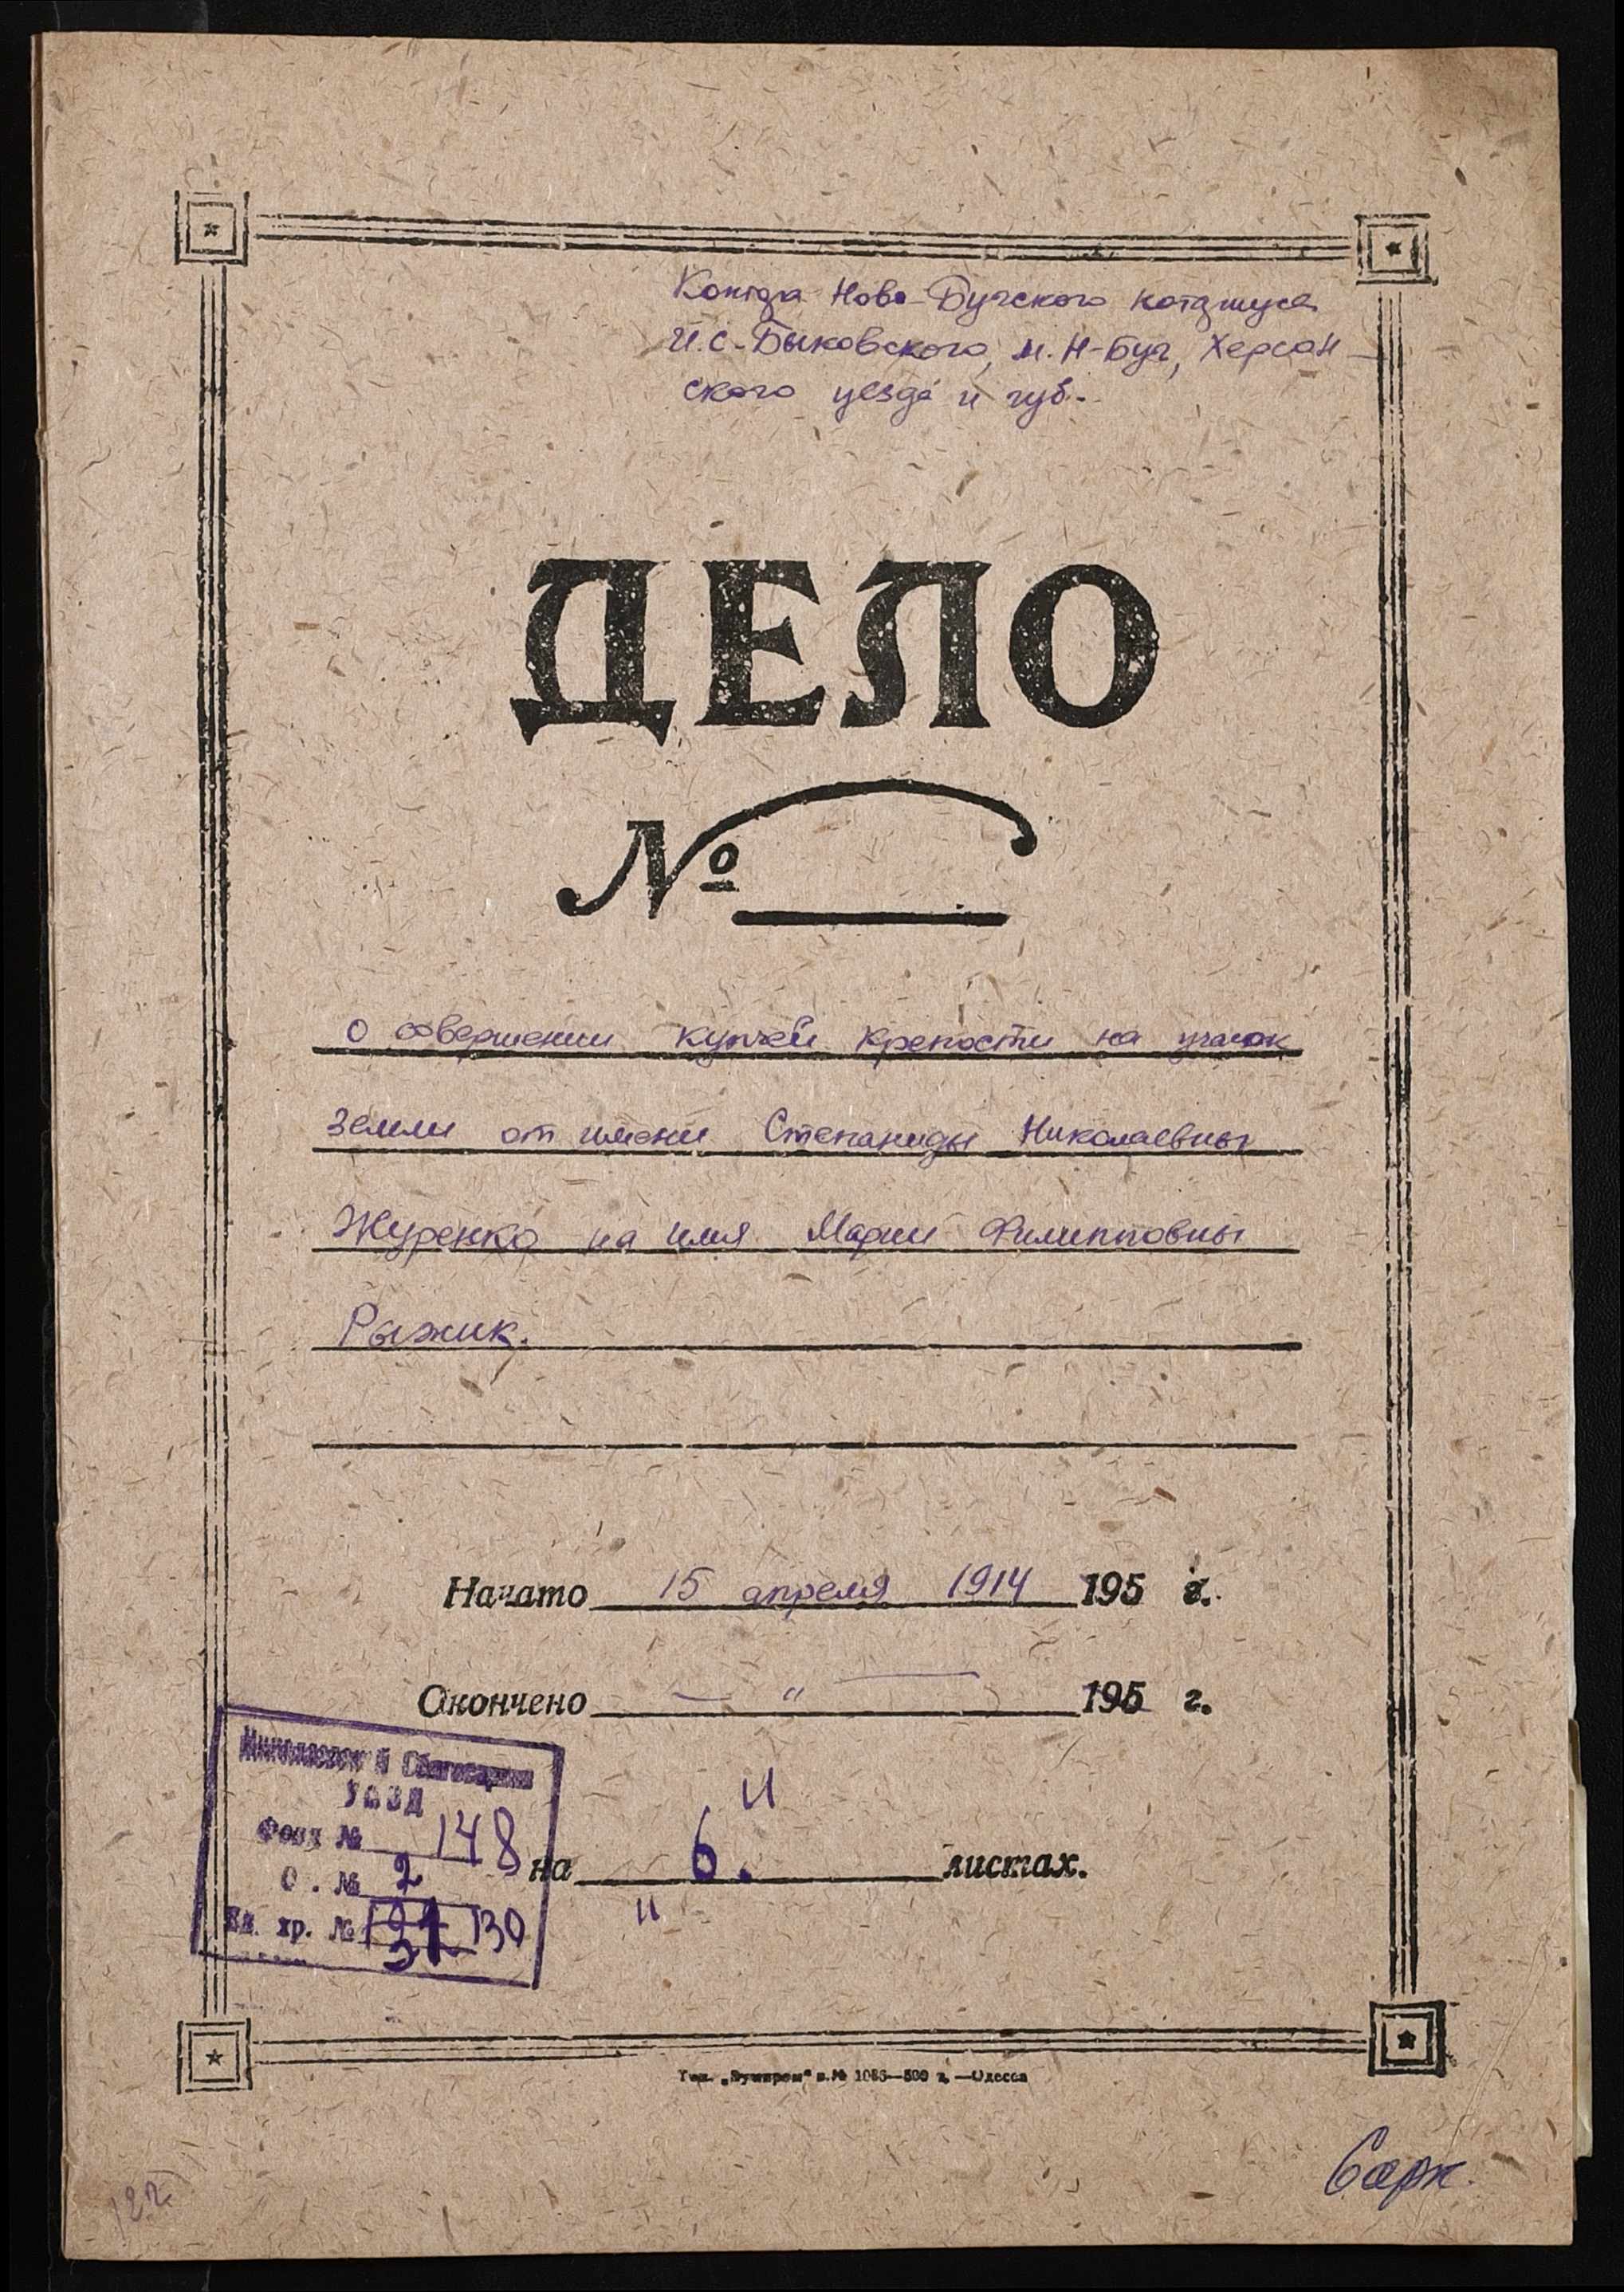 Контора Ново-Бугского нотариуса
И.С-Быковского, м. Н-Буг, Херсон-
ского уезда и губ.
ДЕЛО
№
О совершении купчей крепости на участок
земли от имени Степаниды Николаевны
Журенко на имя Марии Филипповны
Рыжик.
Начато 15 апреля 1914 195 г.
Окончено — " — 195 г.
УМВД
Фонд № 148
О . № 2
Ед. хр. № 130
на 6. листах.
№ 1086—500 т. —Одесса
6 арк.
122